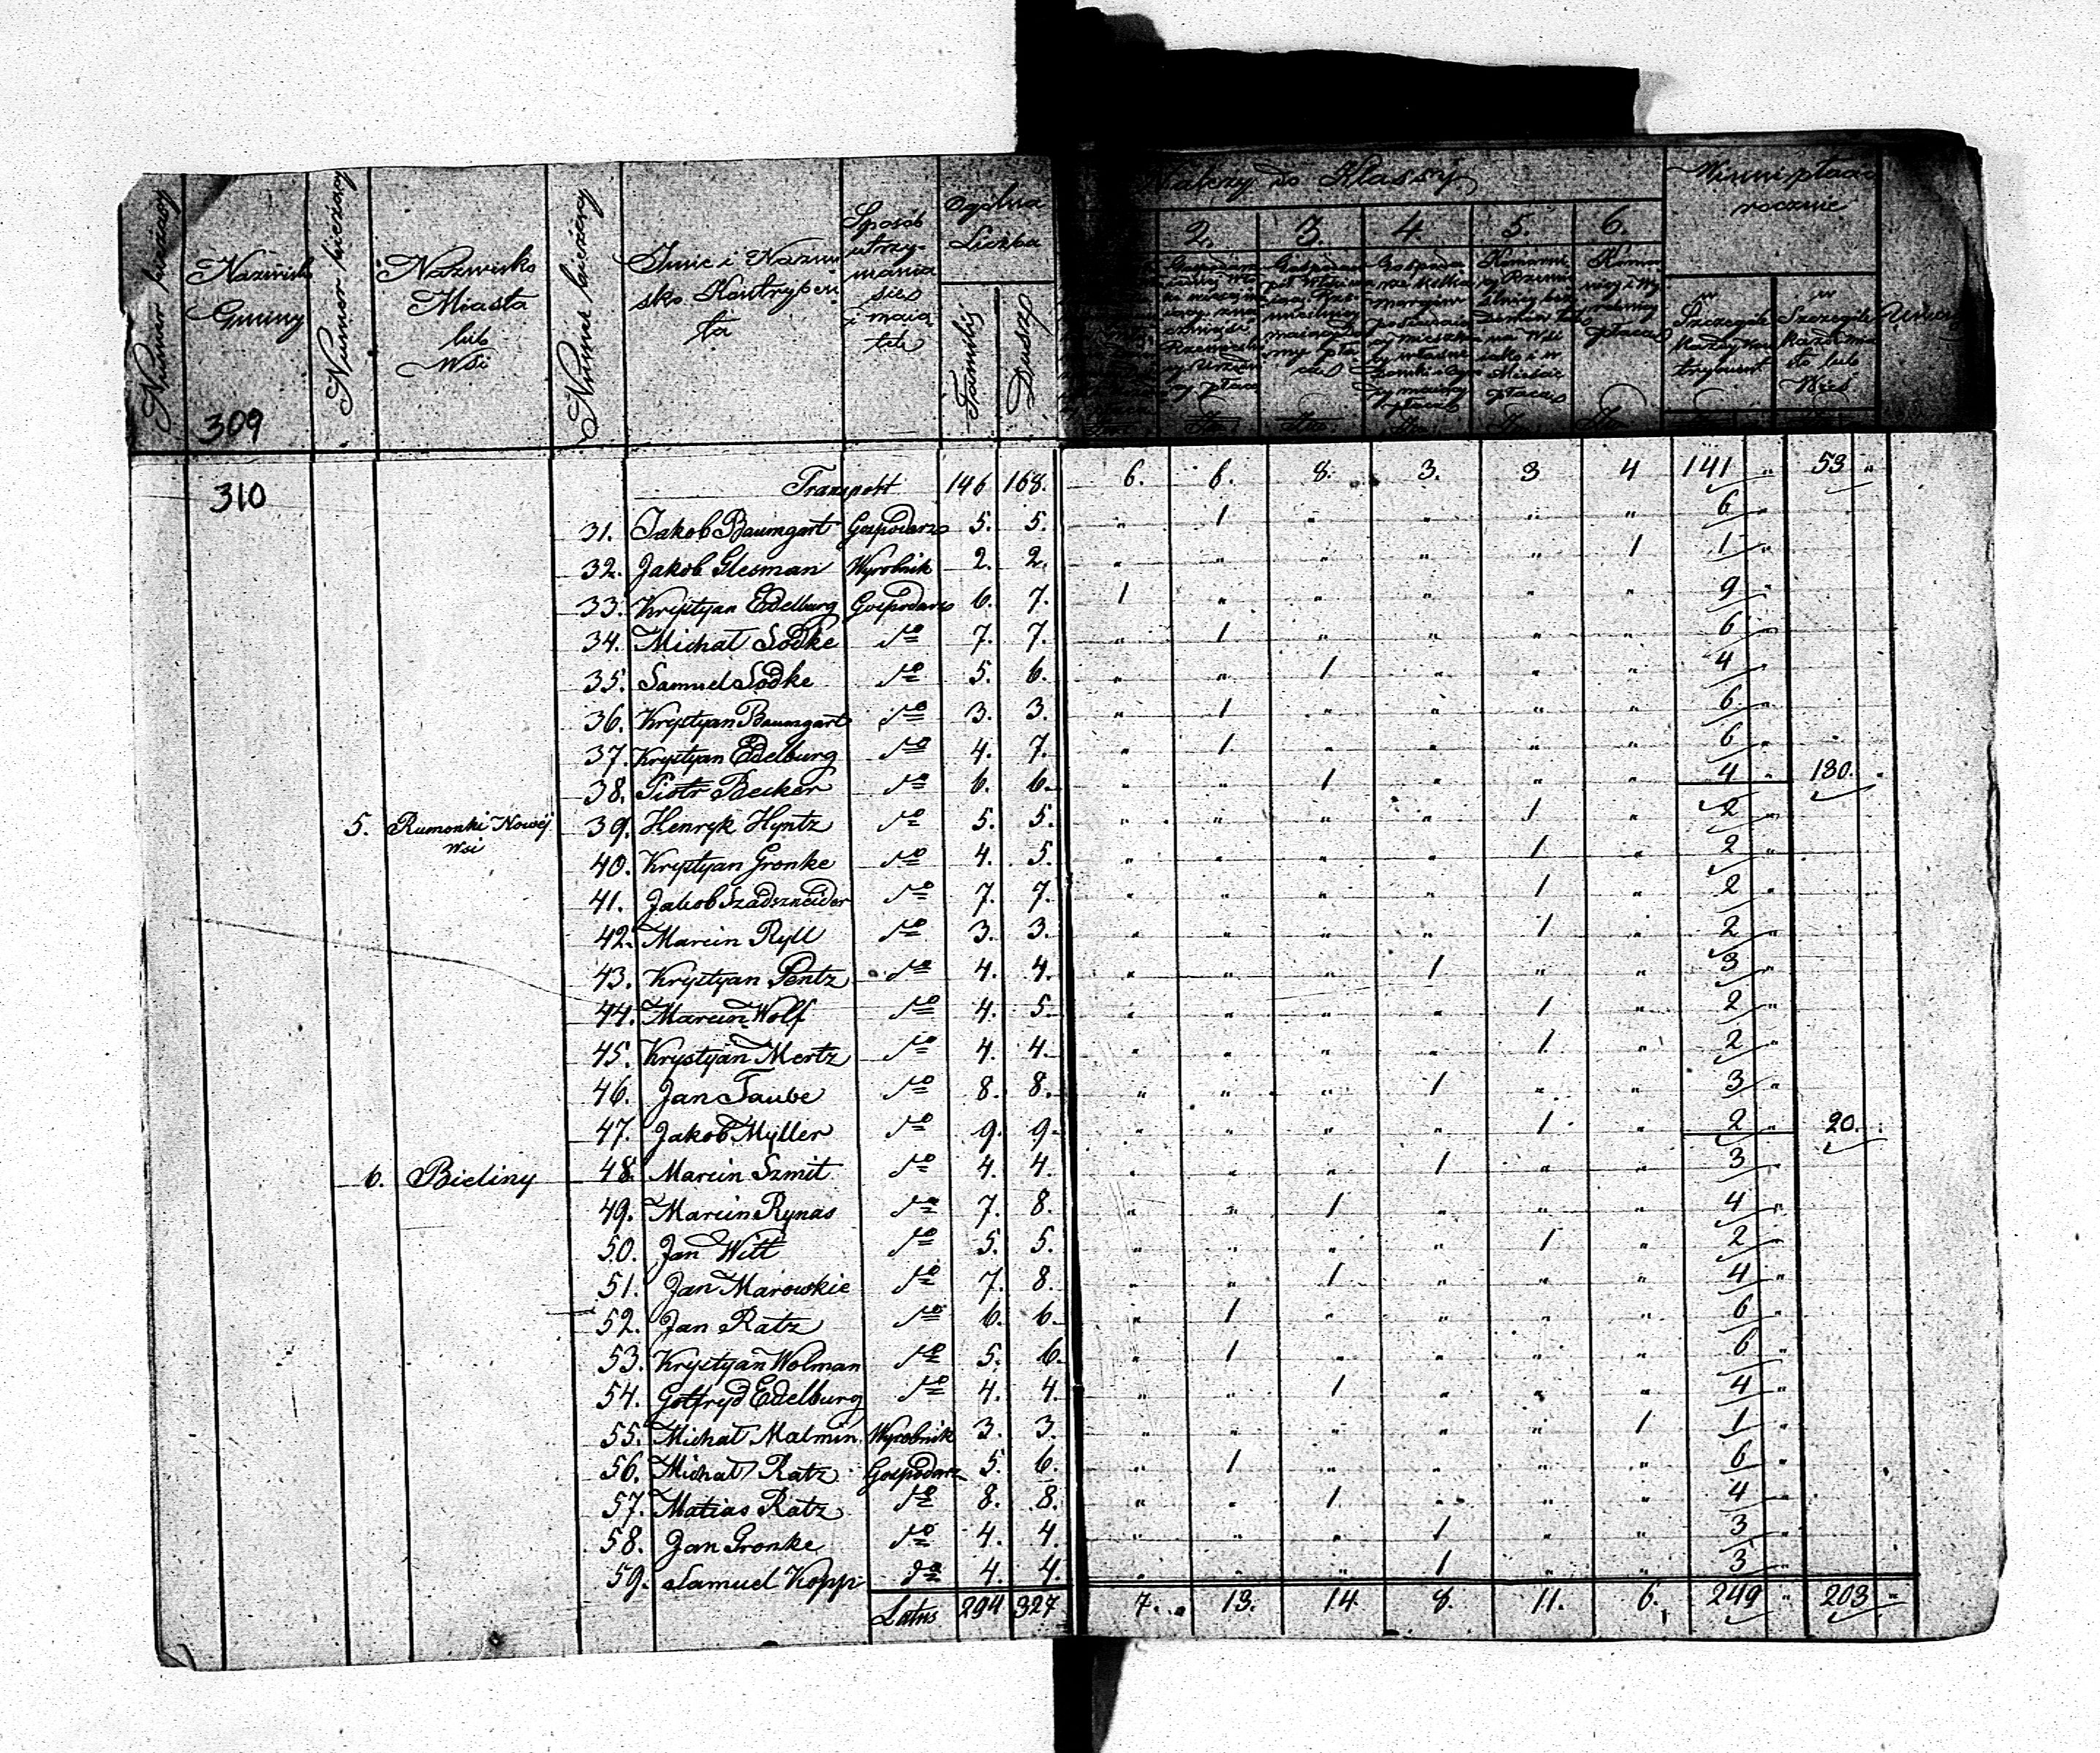 Numer bieżący
Nazwisko Gminy
Numer bieżący
Nazwisko Miasta lub Wsi
Numer bieżący
Imie i Nazwi
sko Kontrybuen
ta
Sposób
utrzy-
mania
sie
i maią
tek
Ogólna
Liczba
Familij
Dusz
Należy do Klassy
2. 3. 4. 5. 6.
Winni płacić
rocznie
w Szczególe
w Szczególe
Uwagi
309
310
Transport 146 168. 6. 6. 8. 3. 3 4 141 " 53 "
31. Jakob Baumgart Gospodarz 5. 5. " 1 " " " " 6 "
32. Jakob Glesman Wyrobnik 2. 2. " " " " " 1 1 "
33. Krystyan Edelburg Gospodarz 6. 7. 1 " " " " " 9 "
34. Michał Sodke do 7. 7. " 1 " " " " 6 "
35. Samuel Sodke do 5. 6. " " 1 " " " 4 "
36. Krystyan Baumgart do 3. 3. " 1 " " " " 6 "
37. Krystyan Edelburg do 4. 7. " 1 " " " " 6 "
38. Piotr Becker do 6. 6. " " 1 " " " 4 " 130. "
5. Rumonki Nowéj Wsi 39. Henryk Hyntz do 5. 5. " " " " 1 " 2 "
40. Krystyan Gronke do 4. 5. " " " " 1 " 2 "
41. Jakob Szadszneider do 7. 7. " " " " 1 " 2 "
42. Marcin Ryll do 3. 3. " " " " 1 " 2 "
43. Krystyan Pentz do 4. 4. " " " 1 " " 3 "
44. Marcin Wolf do 4. 5. " " " " 1 " 2 "
45. Krystyan Mertz do 4. 4. " " " " 1 " 2 "
46. Jan Taube do 8. 8. " " " 1 " " 3 "
47. Jakob Myller do 9. 9. " " " " 1 " 2 " 20. "
6. Bieliny 48. Marcin Szmit do 4. 4. " " " 1 " " 3 "
49. Marcin Rynas do 7. 8. " " 1 " " " 4 "
50. Jan Witt do 5. 5. " " " " 1 " 2 "
51. Jan Marowskie do 7. 8. " " 1 " " " 4 "
52. Jan Ratz do 6. 6. " 1 " " " " 6 "
53. Krystyan Wolman do 5. 6. " 1 " " " " 6 "
54. Gotfryd Edelburg do 4. 4. " " 1 " " " 4 "
55. Michał Malmin Wyrobnik 3. 3. " " " " " 1 1 "
56. Michał Ratz Gospodarz 5. 6. " 1 " " " " 6 "
57. Matias Ratz do 8. 8. " " 1 " " " 4 "
58. Jan Gronke do 4. 4. " " " 1 " " 3 "
59. Samuel Kopp do 4. 4. " " " 1 " " 3 "
Latus 294 327 7. 13. 14. 8. 11. 6. 249 " 203 "